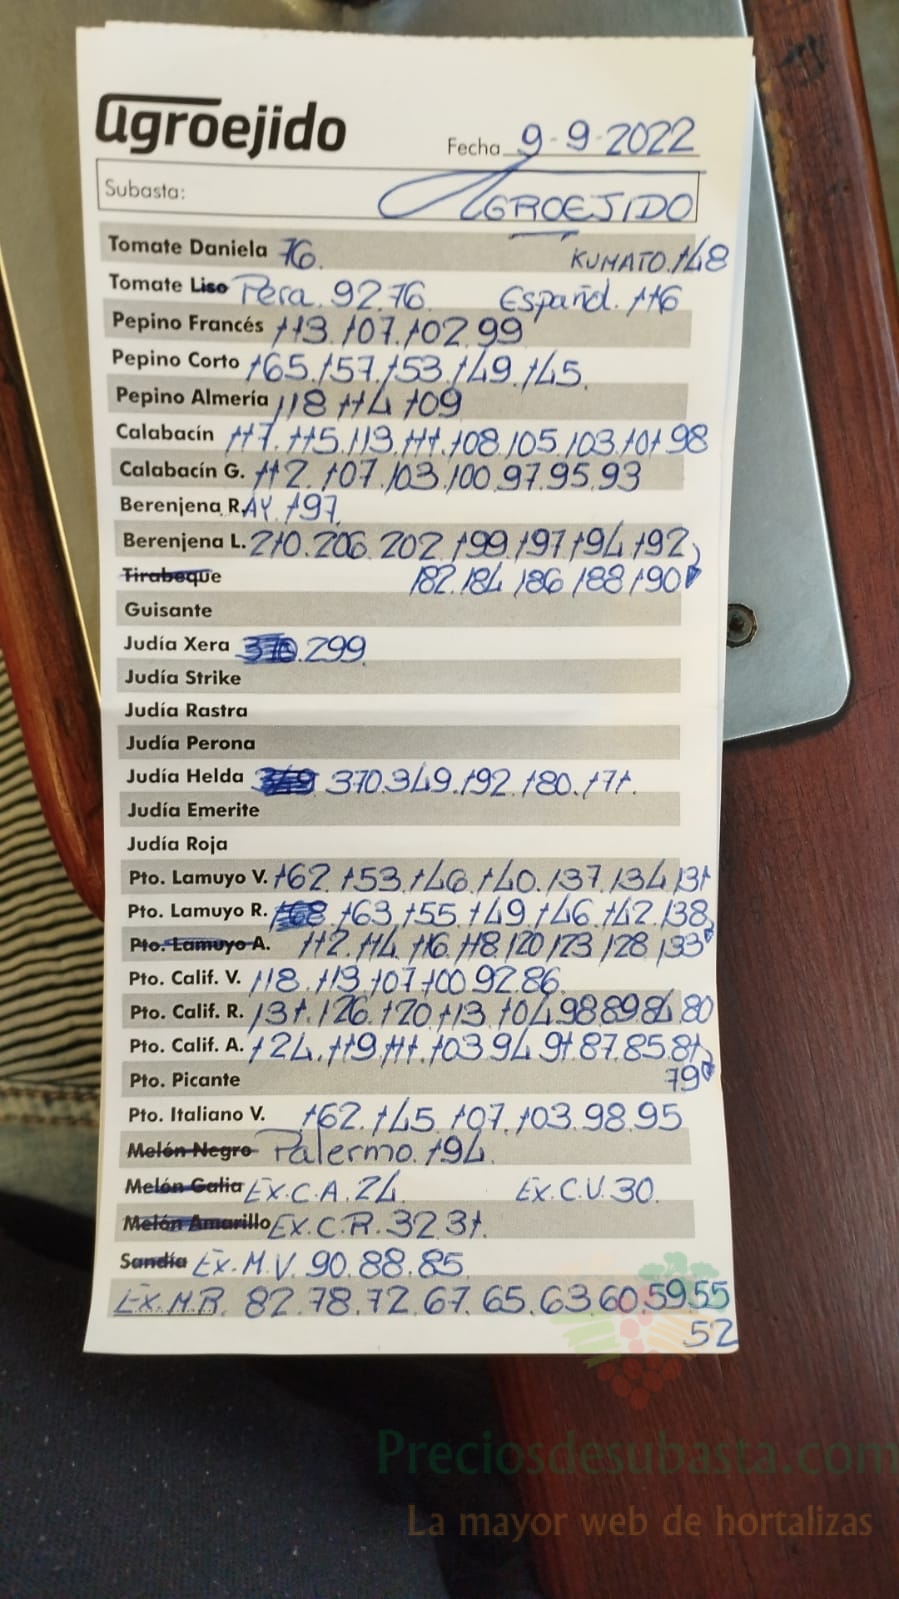 agroejido
Fecha 9-9-2022
Subasta: AGROEJIDO
Tomate Daniela 76. KUMATO.148
Tomate Liso Pera. 92.76. Español. 116
Pepino Francés 113.107.102.99
Pepino Corto 165.157.153.149.145.
Pepino Almería 118 114 109
Calabacín 117.115.113.111.108.105.103.101 98
Calabacín G. 112.107.103.100.97.95.93
Berenjena R.AY. 197
Berenjena L. 210.206.202.199.197.194.192
Tirabeque 182.184.186.188.190
Guisante
Judía Xera 370.299
Judía Strike
Judía Rastra
Judía Perona
Judía Helda 349 370.349.192.180.171.
Judía Emerite
Judía Roja
Pto. Lamuyo V. 162.153.146.140.137.134 131
Pto. Lamuyo R. 168 163.155.149.146.142.138
Pto. Lamuyo A. 112.114.116.118.120 123 128 133
Pto. Calif. V. 118.113.107 100.92.86.
Pto. Calif. R. 131.126.120.113.104.98 89.84 80
Pto. Calif. A. 124.119.111.103.94.91.87.85.81
Pto. Picante 79
Pto. Italiano V. 162.145.107.103.98.95
Melón Negro Palermo.194.
Melón Galia Ex.C.A.24. Ex.C.V.30.
Melón Amarillo Ex.C.R.32 31.
Sandía Ex.M.V. 90.88.85
Ex.M.R. 82.78.72.67.65.63 60.59.55
52
Preciosdesubasta.com
La mayor web de hortalizas